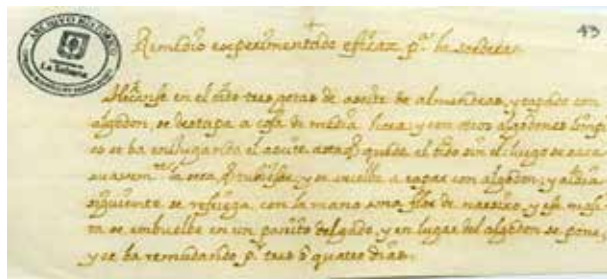 ARCHIVO HISTORICO
La Solana
43
Remedio experimentado eficaz pª la sordera
en el oido tres gotas de aceite de almendras, y tapado con
algodon, se destapa a cosa de media hora, y con otros algodones
se ba enjugando el aceite, asta q quede el oido sin el, luego se
la y se vuelbe a tapar con algodon, y al dia
siguiente se refriega con la mano una flor de narciso, y esa
se embuelbe en un panito delgado, y en lugar del algodon se pone,
y se ba remudando pr tres o quatro dias.